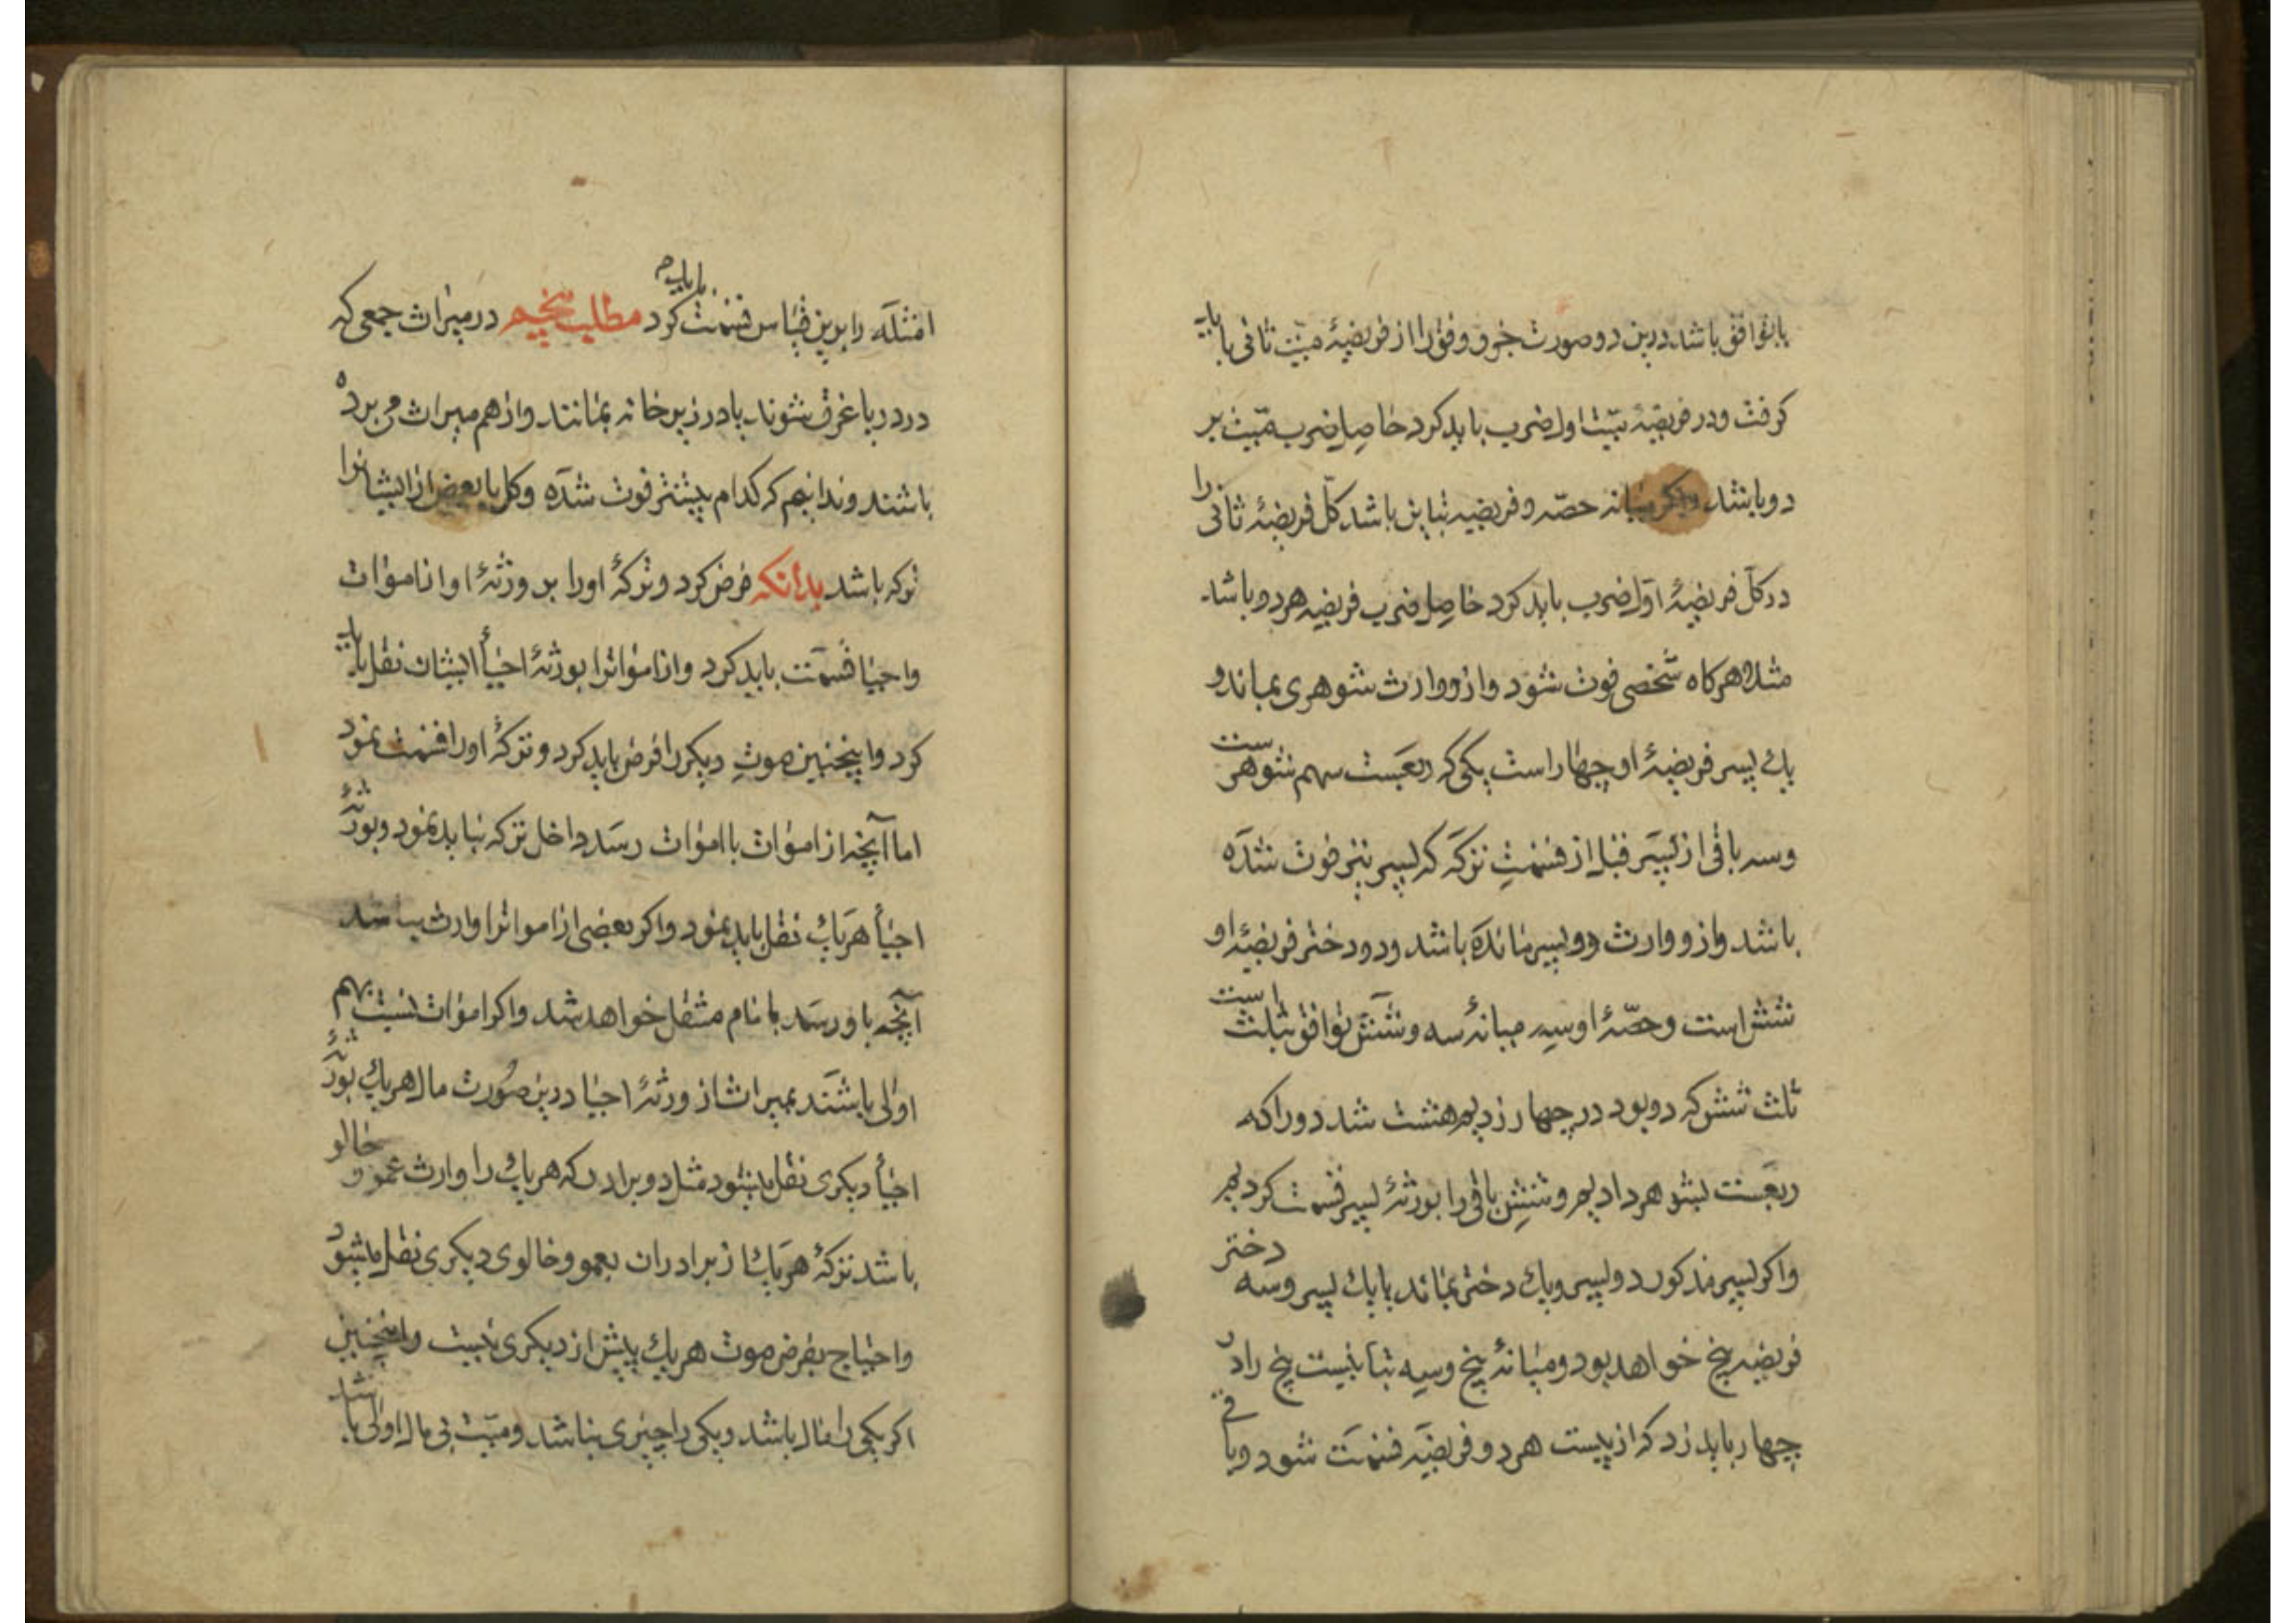 یا توافق باشد درین دو صورت جزو وفق را از فریضهٔ میّت ثانی باید
کرفت و در فریضهٔ میّت اول ضرب باید کرد حاصل ضرب میّت بر
دو باشد و اکر میانه حصّه و فریضه تباین باشد کلّ فریضهٔ ثانی را
در کلّ فریضهٔ اوّل ضرب باید کرد حاصل ضرب فریضه هر دو باشد
مثلا هرکاه شخصی فوت شود و ازو وارث شوهری بماند و
یک پسر فریضهٔ او چهار است یکی که ربعست سهم شوهر ست
و سه باقی از پسر قبل از قسمتِ ترکه که پسر نیز فوت شده
باشد و ازو وارث دو پسر مانده باشد و دو دختر فریضهٔ او
شش است و حصّهٔ او سه میانهٔ سه و شش توافق بثلث است
ثلث شش که دو بود در چهار زدیم هشت شد دو را که
ربعست بشوهر دادیم و ششِ باقی را بورثهٔ پسر قسمت کردیم
و اکر پسر مذکور دو پسر و یک دختر بماند یا یک پسر و سه دختر
فریضه پنج خواهد بود و میانهٔ پنج و سه تباینست پنج را در
چهار باید زد که از بیست هر دو فریضه قسمت شود و باقی
امثله را برین قیاس قسمت باید کرد مطلب پنجم در میراث جمعی که
در دریا غرق شوند یا در زیر خانه بمانند و از هم میراث می برده
باشند و ندانیم که کدام پیشتر فوت شده و کل یا بعض از ایشانرا
ترکه باشد بدانکه فرض کرد و ترکهٔ او را بر ورثهٔ او از اموات
و احیا قسمت باید کرد و از امواترا بورثهٔ احیأ ایشان نقل باید
کرد و اینچنین موتِ دیکر را فرض باید کرد و ترکهٔ او را قسمت نمود
اما آنچه از اموات باموات رسد داخل ترکه نباید نمود و بورثهٔ
احیأ هر یک نقل باید نمود و اکر بعضی از امواترا وارث نباشد
آنچه باو رسد بامام منتقل خواهد شد و اکر اموات نسبت بهم
اولی باشند بمیراث از ورثهٔ احیا درین صورت مال هر یک بورثهٔ
احیأ دیکری نقل میشود مثل دو برادر که هر یک را وارث عمو و خالو
باشد ترکهٔ هر یک از برادران بعمو و خالوی دیکری نقل میشود
و احتیاج بفرض موت هر یک پیش از دیکری نیست و اینچنین
اکر یکی را مال باشد و یکی را چیزی نباشد و میّت بی مال اولی باشد